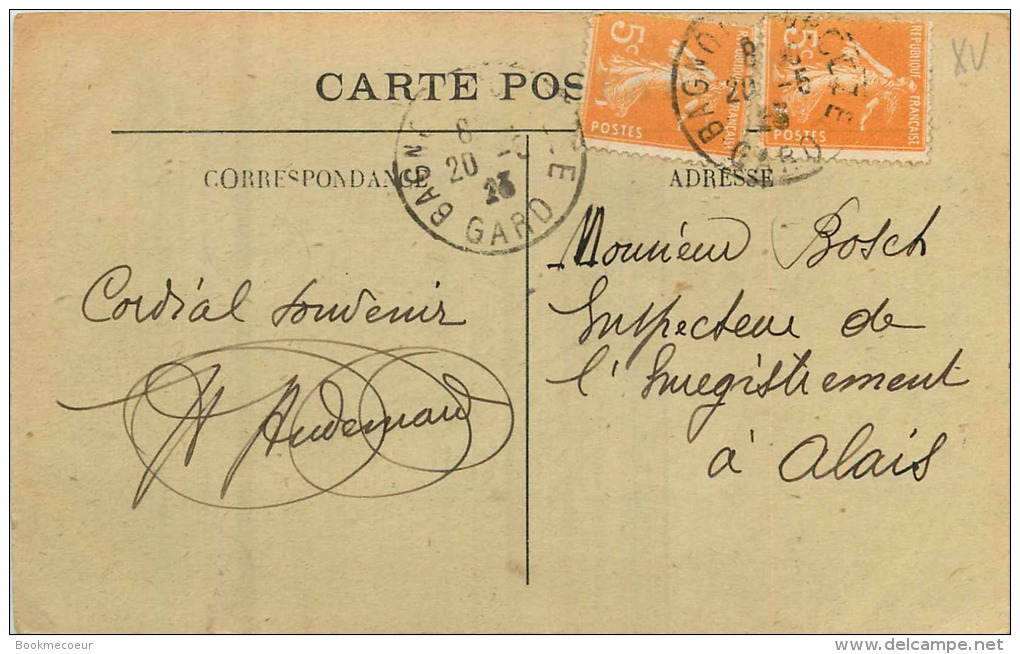 CARTE POS
5c
POSTES
5c
REPUBLIQUE FRANÇAISE
POSTES
BAGNO CEZE
8
20 -5
23
GARD
XV
CORRESPONDANCE
ADRESSE
8
20 -5
23
BAGNO
GARD
Cordial souvenir
Audemard
Monsieur Bosch
Inspecteur de
l'Enregistrement
à Alais
Bookmecoeur
www.delcampe.net